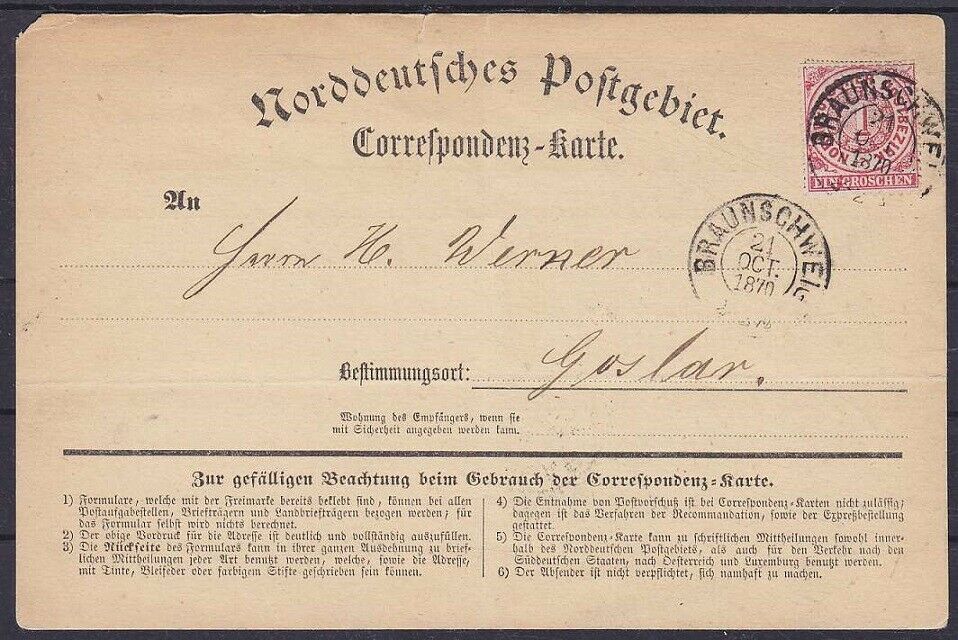 Norddeutsches Postgebiet.
Correspondenz-Karte.
BRAUNSCHWEI
21
1870
1
NORD
BEZIRK
EIN GROSCHEN
An
Herrn H. Werner
BRAUNSCHWEIG
21
OCT.
1870
Bestimmungsort: Goslar.
Wohnung des Empfängers, wenn sie
mit Sicherheit angegeben werden kann.
Zur gefälligen Beachtung beim Gebrauch der Correspondenz-Karte.
1) Formulare, welche mit der Freimarke bereits beklebt sind, können bei allen
Postaufgabestellen, Briefträgern und Landbriefträgern bezogen werden; für
das Formular selbst wird nichts berechnet.
2) Der obige Vordruck für die Adresse ist deutlich und vollständig auszufüllen.
3) Die Rückseite des Formulars kann in ihrer ganzen Ausdehnung zu brief-
lichen Mittheilungen jeder Art benutzt werden, welche, sowie die Adresse,
mit Tinte, Bleifeder oder farbigem Stifte geschrieben sein können.
4) Die Entnahme von Postvorschuß ist bei Correspondenz-Karten nicht zulässig;
dagegen ist das Verfahren der Recommandation, sowie der Expreßbestellung
gestattet.
5) Die Correspondenz-Karte kann zu schriftlichen Mittheilungen sowohl inner-
halb des Norddeutschen Postgebiets, als auch für den Verkehr nach den
Süddeutschen Staaten, nach Oesterreich und Luxemburg benutzt werden.
6) Der Absender ist nicht verpflichtet, sich namhaft zu machen.